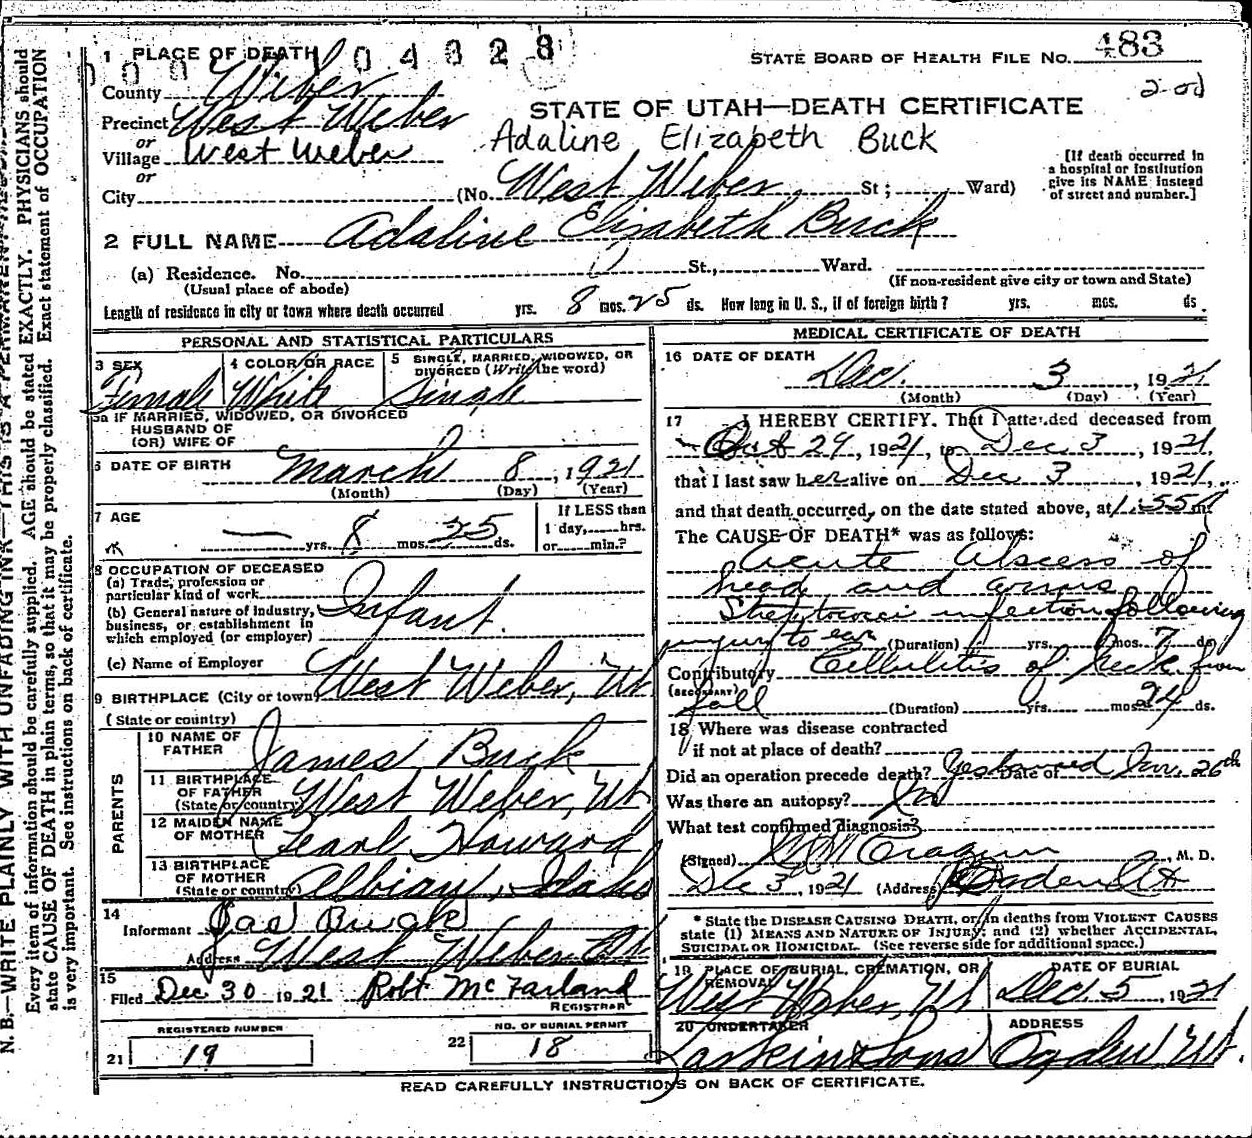 1 PLACE OF DEATH
0 0 0 1 0 4 8 2 8
STATE BOARD OF HEALTH FILE No. 483
County Weber
2-od
STATE OF UTAH—DEATH CERTIFICATE
Precinct West Weber
or
Village West Weber
Adaline Elizabeth Buck
[If death occurred in
a hospital or institution
give its NAME instead
of street and number.]
or
City (No. West Weber St; Ward)
2 FULL NAME Adaline Elizabeth Buck
(a) Residence. No. St., Ward.
(Usual place of abode) (If non-resident give city or town and State)
Length of residence in city or town where death occurred yrs. 8 mos. 25 ds. How long in U. S., if of foreign birth? yrs. mos. ds.
PERSONAL AND STATISTICAL PARTICULARS
3 SEX 4 COLOR OR RACE 5 SINGLE, MARRIED, WIDOWED, OR
DIVORCED (Write the word)
Female White Single
5a IF MARRIED, WIDOWED, OR DIVORCED
HUSBAND OF
(OR) WIFE OF
6 DATE OF BIRTH March 8, 1921
(Month) (Day) (Year)
7 AGE If LESS than
1 day, hrs.
— yrs. 8 mos. 25 ds. or min.?
8 OCCUPATION OF DECEASED
(a) Trade, profession or
particular kind of work
Infant.
(b) General nature of industry,
business, or establishment in
which employed (or employer)
(c) Name of Employer
9 BIRTHPLACE (City or town) West Weber, Ut
(State or country)
PARENTS
10 NAME OF
FATHER James Buck
11 BIRTHPLACE
OF FATHER
(State or country) West Weber, Ut
12 MAIDEN NAME
OF MOTHER Pearl Howard
13 BIRTHPLACE
OF MOTHER
(State or country) Albion, Idaho
14
Informant Jas Buck
Address West Weber Ut
15
Filed Dec 30 1921 Robt McFarland
REGISTRAR
REGISTERED NUMBER NO. OF BURIAL PERMIT
21 19 22 18
MEDICAL CERTIFICATE OF DEATH
16 DATE OF DEATH
Dec. 3, 1921
(Month) (Day) (Year)
17 I HEREBY CERTIFY. That I attended deceased from
Oct 29, 1921, to Dec 3, 1921,
that I last saw her alive on Dec 3 1921,
and that death occurred, on the date stated above, at 1:55 m.
The CAUSE OF DEATH* was as follows:
acute abscess of
head and arms
infection following
injury to ear (Duration) yrs. mos. 7 ds
Contributory Cellulitis of neck from
(SECONDARY)
fall (Duration) yrs. mos. 24 ds.
18 Where was disease contracted
if not at place of death?
Did an operation precede death? Date of 26th
Was there an autopsy? No
What test confirmed diagnosis?
(Signed) M. D.
Dec 3, 1921 (Address) Ogden Ut
* State the DISEASE CAUSING DEATH, or, in deaths from VIOLENT CAUSES
state (1) MEANS AND NATURE OF INJURY; and (2) whether ACCIDENTAL,
SUICIDAL OR HOMICIDAL. (See reverse side for additional space.)
19 PLACE OF BURIAL, CREMATION, OR
REMOVAL DATE OF BURIAL
West Weber, Ut Dec. 5, 1921
20 UNDERTAKER ADDRESS
Larkin & Sons Ogden, Ut.
READ CAREFULLY INSTRUCTIONS ON BACK OF CERTIFICATE.
N. B.—WRITE PLAINLY WITH UNFADING INK—THIS IS A PERMANENT
Every item of information should be carefully supplied. AGE should be stated EXACTLY. PHYSICIANS should
state CAUSE OF DEATH in plain terms, so that it may be properly classified. Exact statement of OCCUPATION
is very important. See instructions on back of certificate.